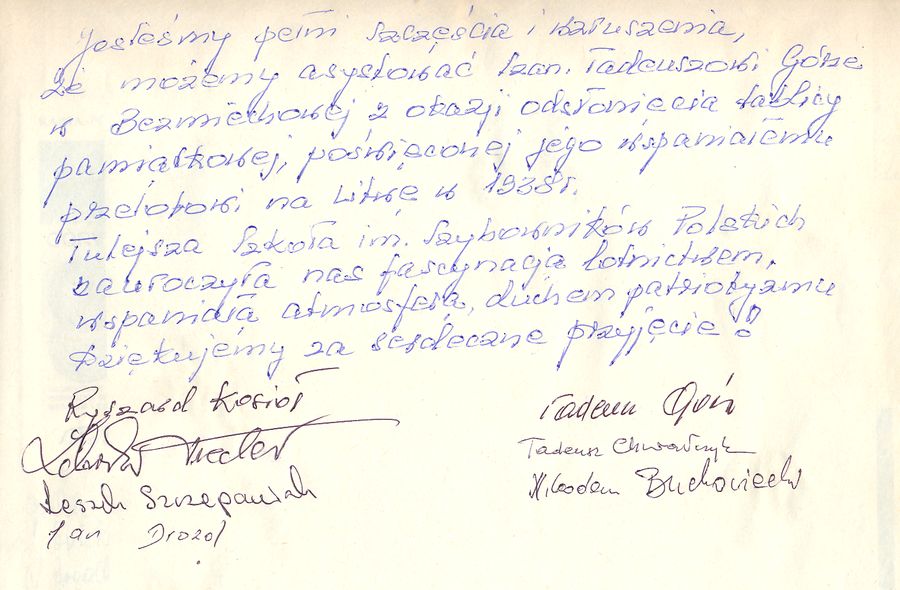 Jesteśmy pełni szczęścia i wzruszenia,
że możemy asystować szan. Tadeuszowi Górze
w Bezmiechowej z okazji odsłonięcia tablicy
pamiątkowej, poświęconej jego wspaniałemu
przelotowi na Litwę w 1938r.
Tutejsza Szkoła im. Szybowników Polskich
zauroczyła nas fascynacją lotnictwem,
wspaniałą atmosferą, duchem patriotyzmu
Dziękujemy za serdeczne przyjęcie!
Ryszard Kosioł
Tadeusz Góra
Tadeusz Chwałczyk
Leszek Szczepaniak
Nikodem Buchowiecki
Jan Drozd